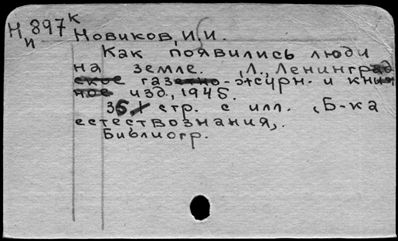 Н 397к
и
Новиков, И.И.
Как появились люди
на земле. Л., Ленинград
ское газетно-журн. и книж
ное изд., 1945.
36 стр. с илл. (Б-ка
естествознания).
Библиогр.